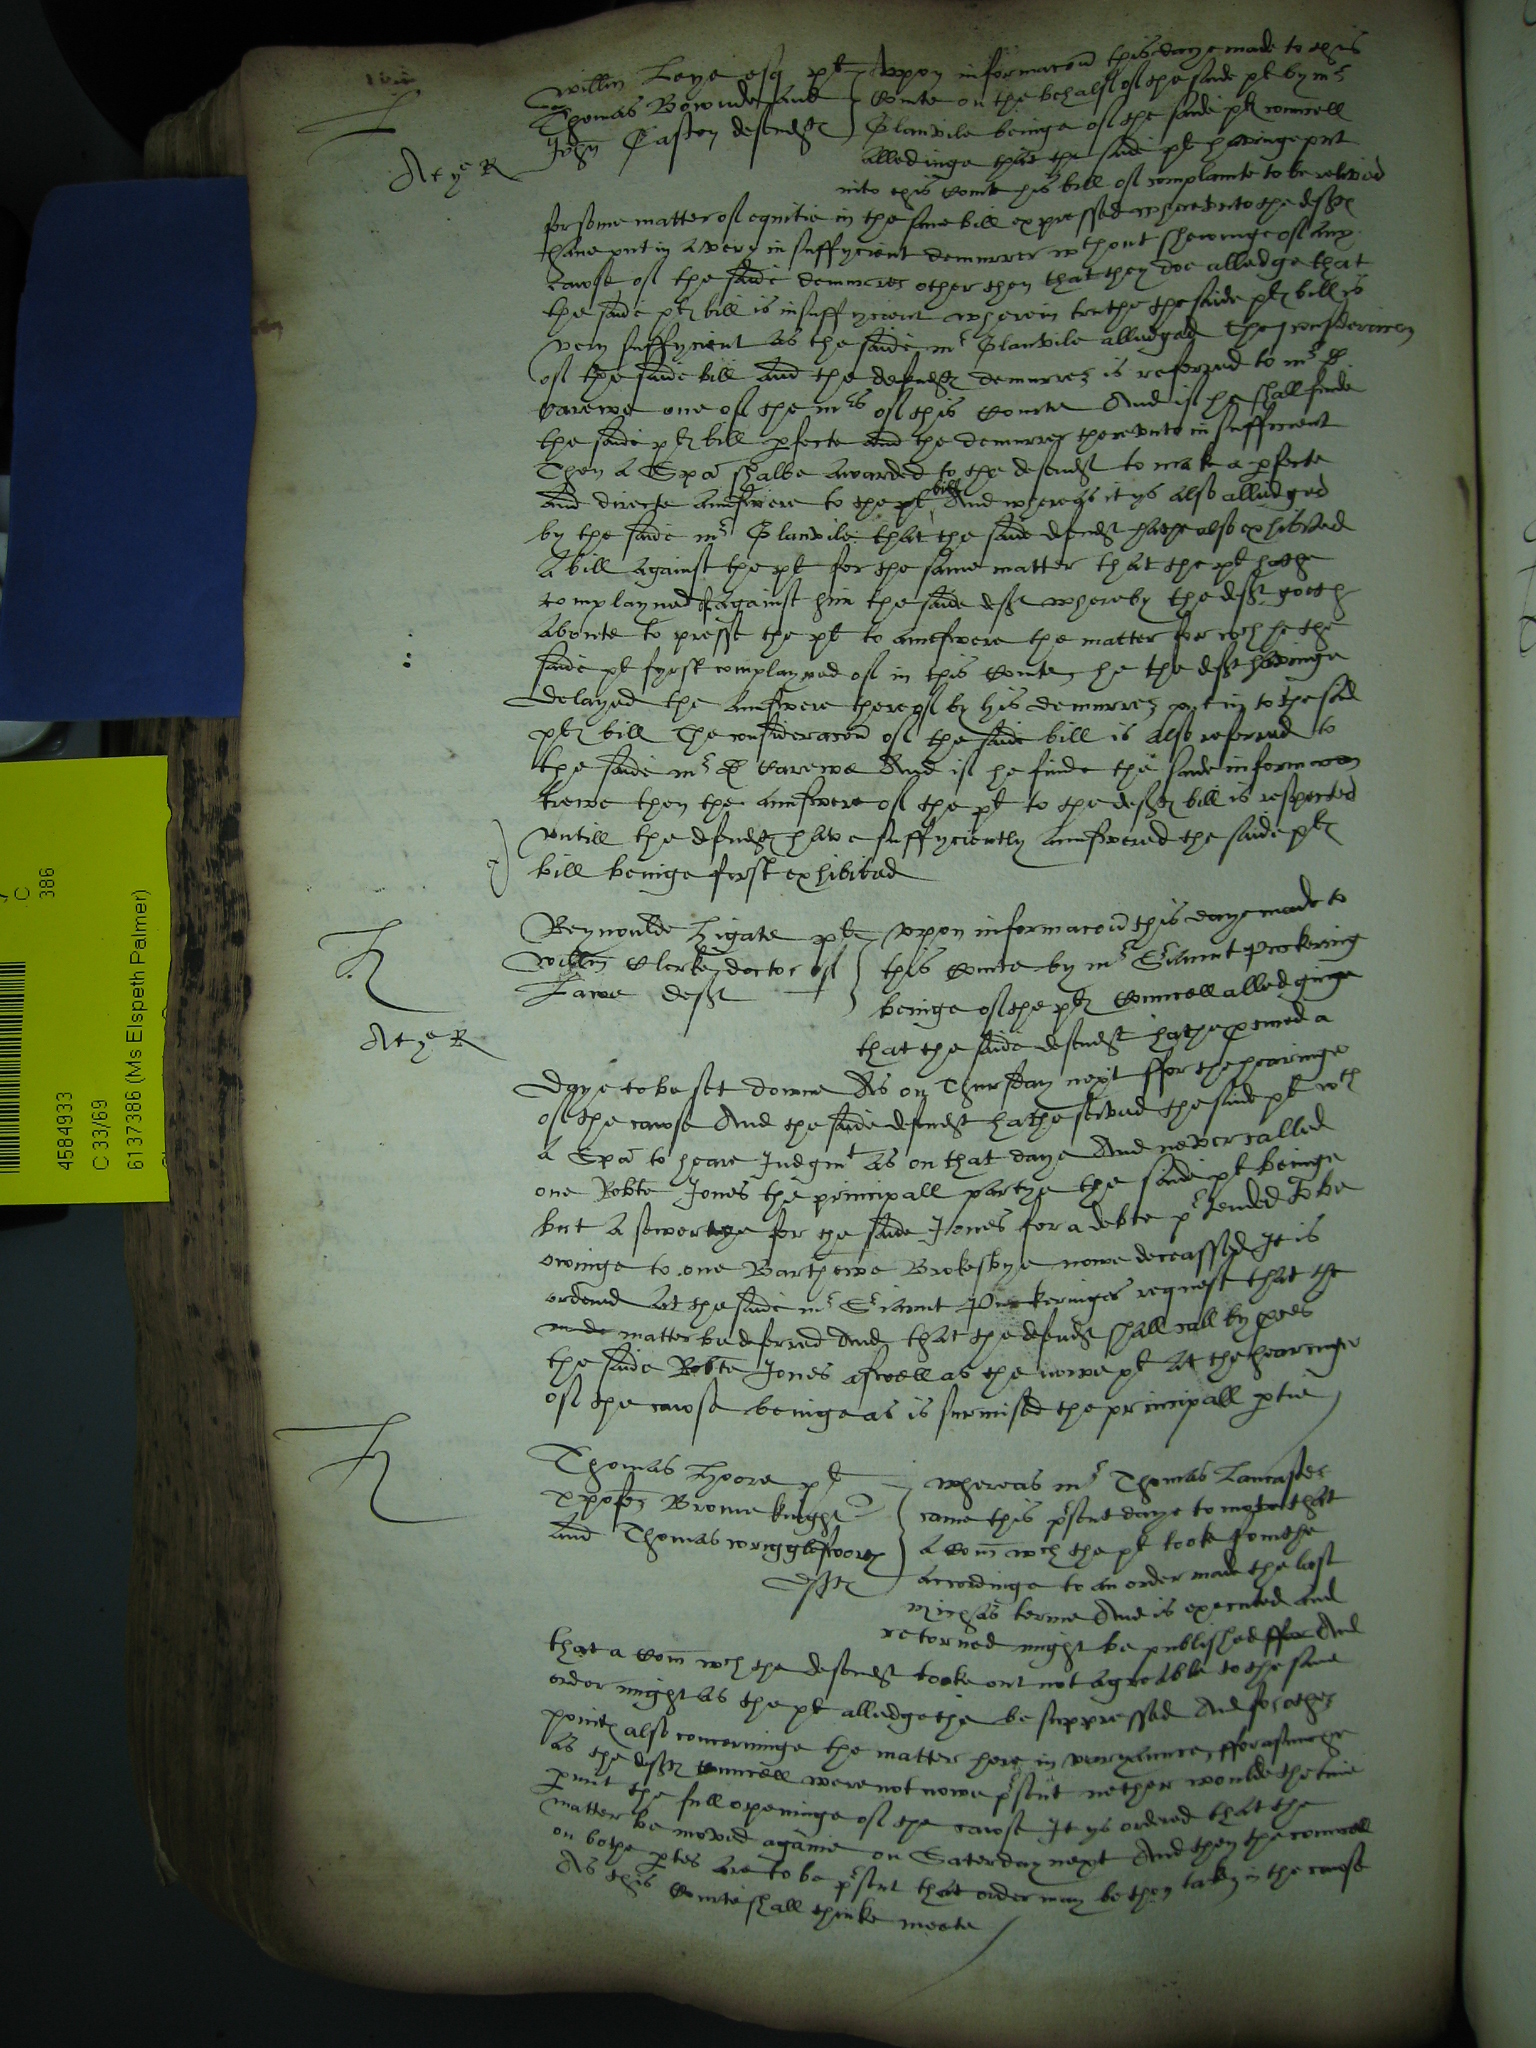 L
At ye R
Willm Leye esq plt
Thomas Bownde and
John Easton defendtes
Uppon informacon this daye made to this
Courte on the behalf of the saide plt by mr
Glanvile beinge of the saide pltes councell
alledginge that the saide plt havinge put
into this Courte his bill of complainte to be releived
for some matter of equitie in the same bill expressed wherunto the deftes
have put in a very insuffycient demurrer wthout shewinge of any
cawse of the saide demurrer other then that they doe alledge that
the saide pltes bill is insuffycient wherein truthe the saide pltes bill is
very suffycient as the saide mr Glanvile alledged the consideracon
of the saide bill and the defendtes demurrer is referred to mr D
Carewe one of the mrs of this Courte And if he shall finde
the saide pltes bill perfecte and the demurrer therunto insufficient
Then a Spa shalbe awarded to the defendt to make a perfecte
and directe answere to the plt bill And whereas it ys also alledged
by the saide mr Glanvile that the saide defendt hathe also exhibited
a bill against the plt for the same matter that the plt hathe
complayned of against him the saide deft whereby the deft goeth
aboute to presse the plt to answere the matter for wch he the
saide plt fyrst complayned of in this Courte, he the deft havinge
delayed the answere thereof by his demurrer put in to the said
pltes bill The consideracon of the saide bill is also referred to
the saide mr D Carewe And if he finde the saide informacon
trewe then the answere of the plt to the deftes bill is respected
untill the defendtes have suffyciently answered the saide pltes
bill beinge first exhibited
H
At ye R
Reynoulde Higate plt
Willm Clerke doctor of
Lawe deft
Uppon informacon this daye made to
this Courte by mr Seriaunt Puckering
beinge of the pltes Councell alledginge
that the saide defendt hathe procured a
Daye to be set downe As on Thursday next ffor the hearinge
of the cawse And the saide defendt hathe served the saide plt wth
a Spa to heare Judgmt as on that daye And never called
one Robte Jones the principall partye the saide plt beinge
but a suertye for the saide Jones for a debte prtended to be
owinge to one Barthewe Brokesbye nowe deceassed It is
ordered at the saide mr Seriaunt Puckeringes request that the
matter be deferred And that the defendt shall call by proces
the saide Robte Jones aswell as the nowe plt at the hearinge
of the cawse beinge as is surmised the principall partie
H
Thomas Hoore plt
Xpofer Browne knight
and Thomas Wrigglesworth
deftes
Whereas mr Thomas Lancaster
came this prsent daye to move that
a Com wch the plt tooke fourthe
accordinge to an order made the last
Michas terme And is executed and
retorned might be published And
that a Com wch the defendt tooke out not agreable to the same
order might as the plt alledgethe be suppressed And for other
pointes also concerninge the matter here in varyaunce, fforasmuche
as the deftes Councell were not nowe prsent nether woulde the time
permit the full openinge of the cawse It ys ordered that the
matter be moved againe on Saterday next And then the councell
on bothe partes are to be prsent that order may be then taken in the cawse
As this Courte shall thinke meete
4584933
C 33/69
6137386 (Ms Elspeth Palmer)
C
386